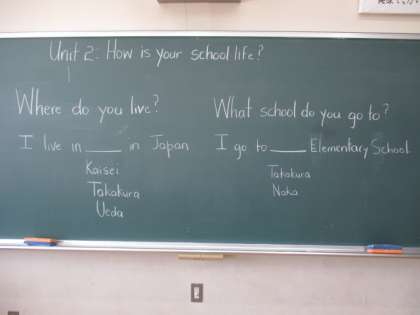 Unit 2: How is your school life?
Where do you live?
I live in ____ in Japan
Kaisei
Takakura
Ueda
What school do you go to?
I go to ____ Elementary School
Takakura
Naka